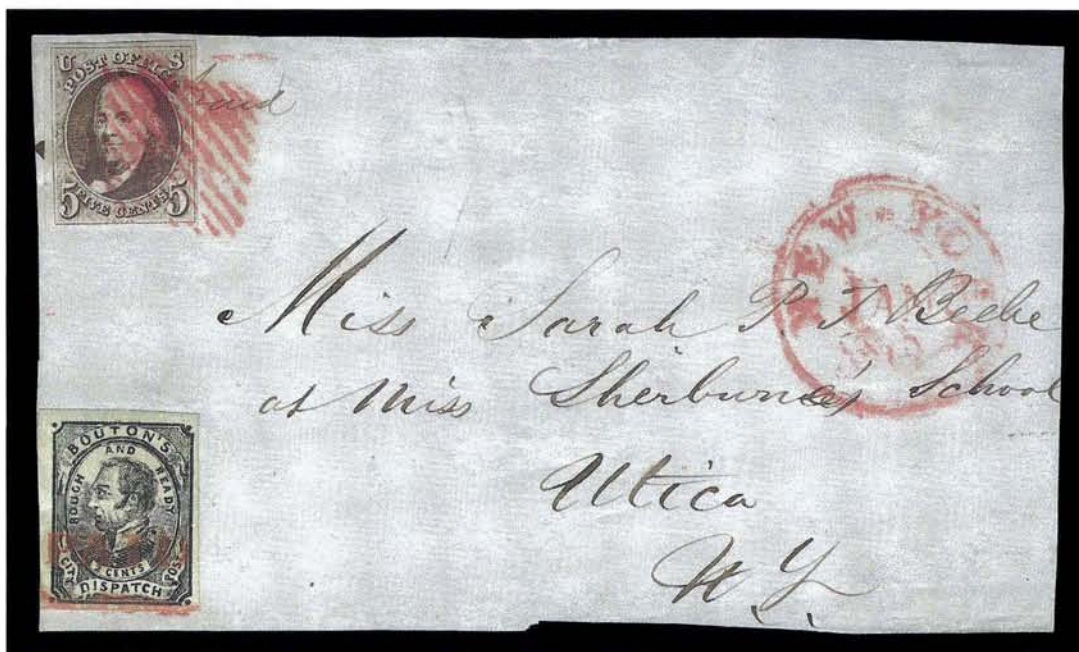 U S
POST OFFICE
5 FIVE CENTS 5
Paid
NEW-YO
JAN
Miss Sarah P. T Beebe
at Miss Sherburne's School
Utica
N. Y.
BOUTON'S
ROUGH AND READY
2 CENTS
CITY DISPATCH POST